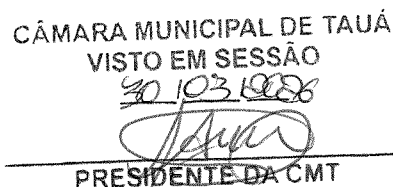 CÂMARA MUNICIPAL DE TAUÁ
VISTO EM SESSÃO
30/03/2026
PRESIDENTE DA CMT